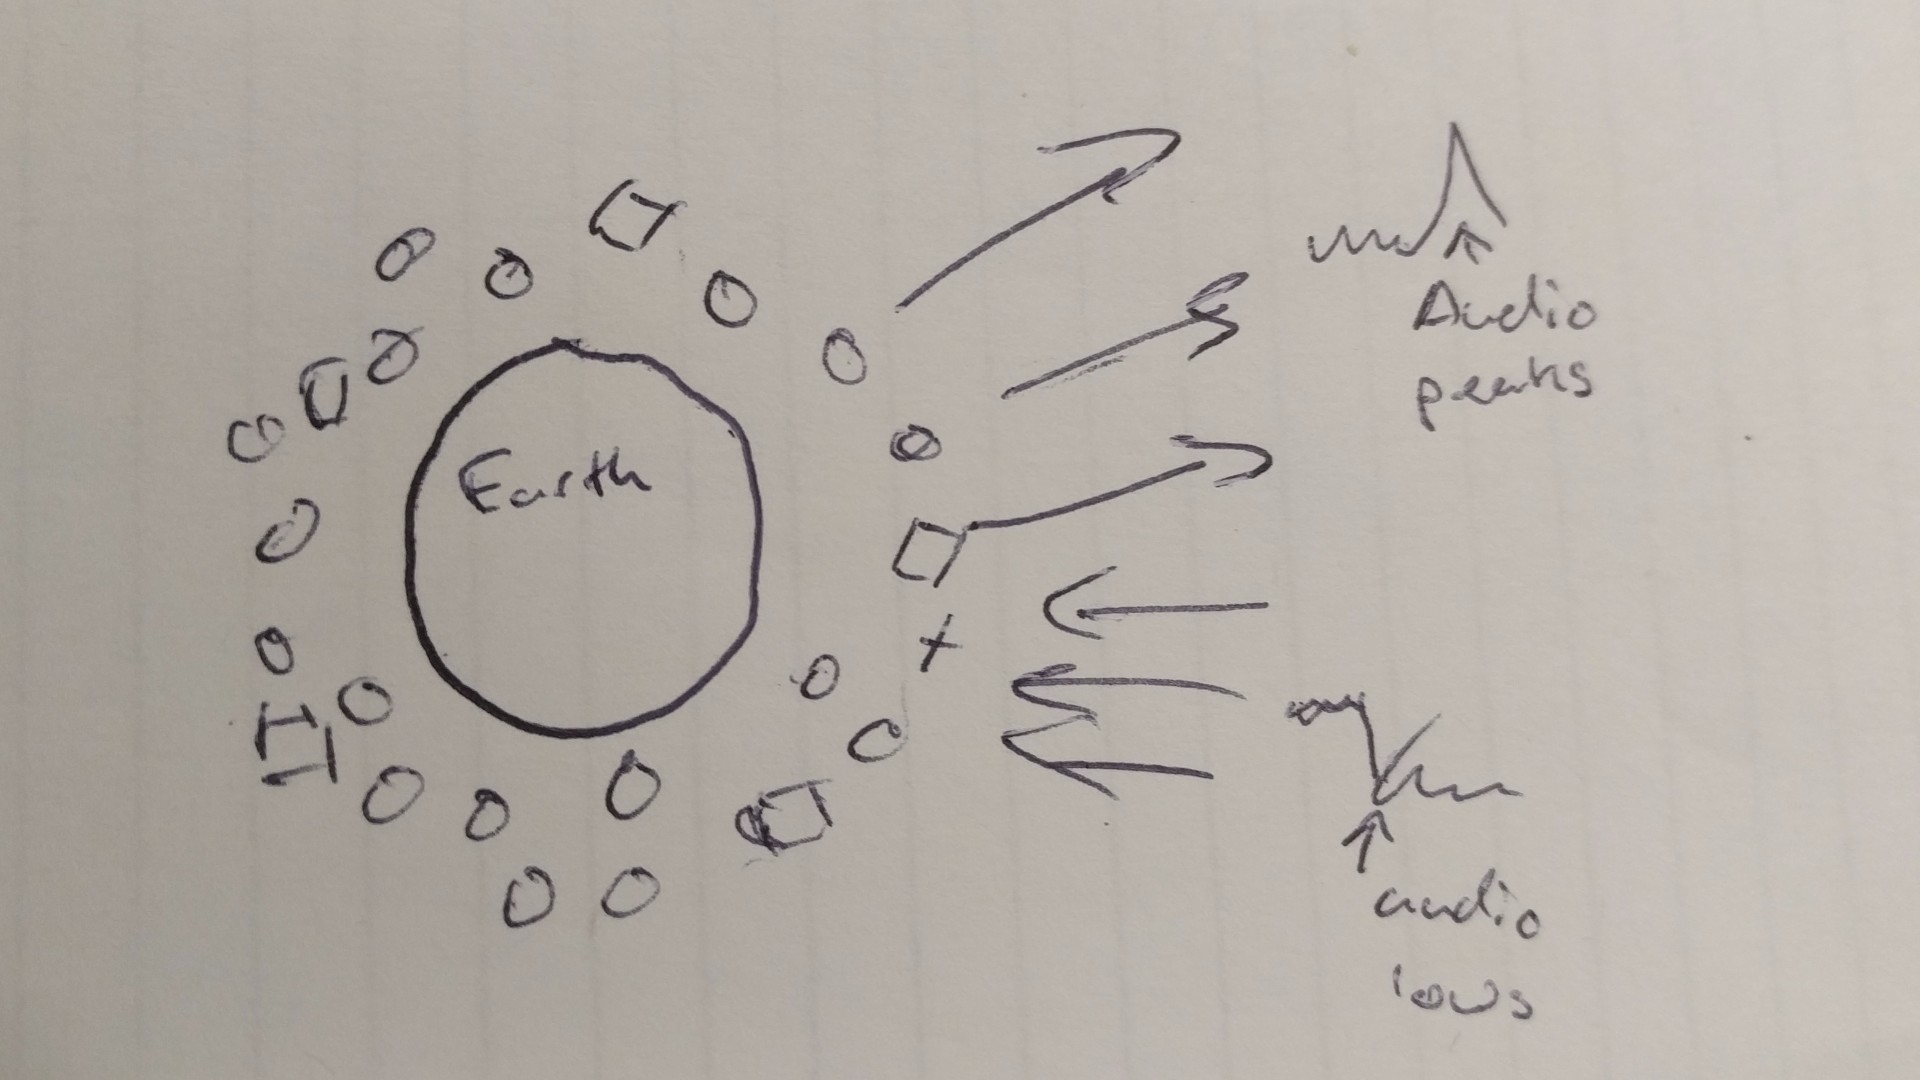 Earth
Audio
peaks
audio
lows